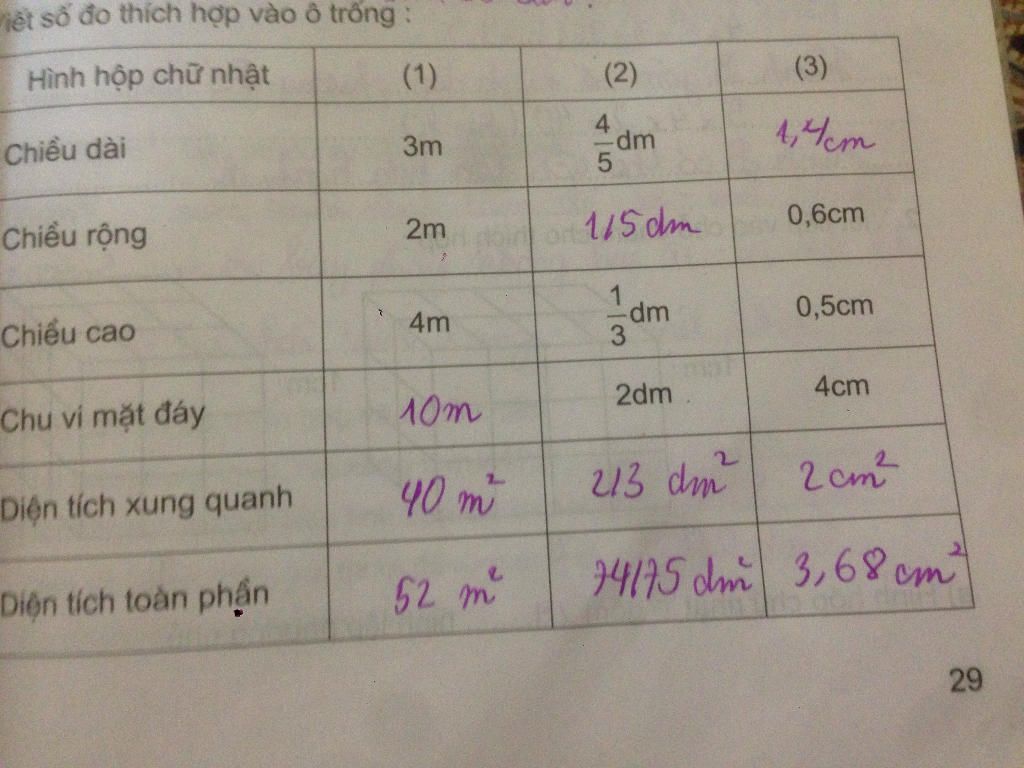 Viết số đo thích hợp vào ô trống :
Hình hộp chữ nhật (1) (2) (3)
Chiều dài 3m 4/5 dm 1,4cm
Chiều rộng 2m 1/5 dm 0,6cm
Chiều cao 4m 1/3 dm 0,5cm
Chu vi mặt đáy 10m 2dm 4cm
Diện tích xung quanh 40 m² 2/3 dm² 2cm²
Diện tích toàn phần 52 m² 74/75 dm² 3,68 cm²
29